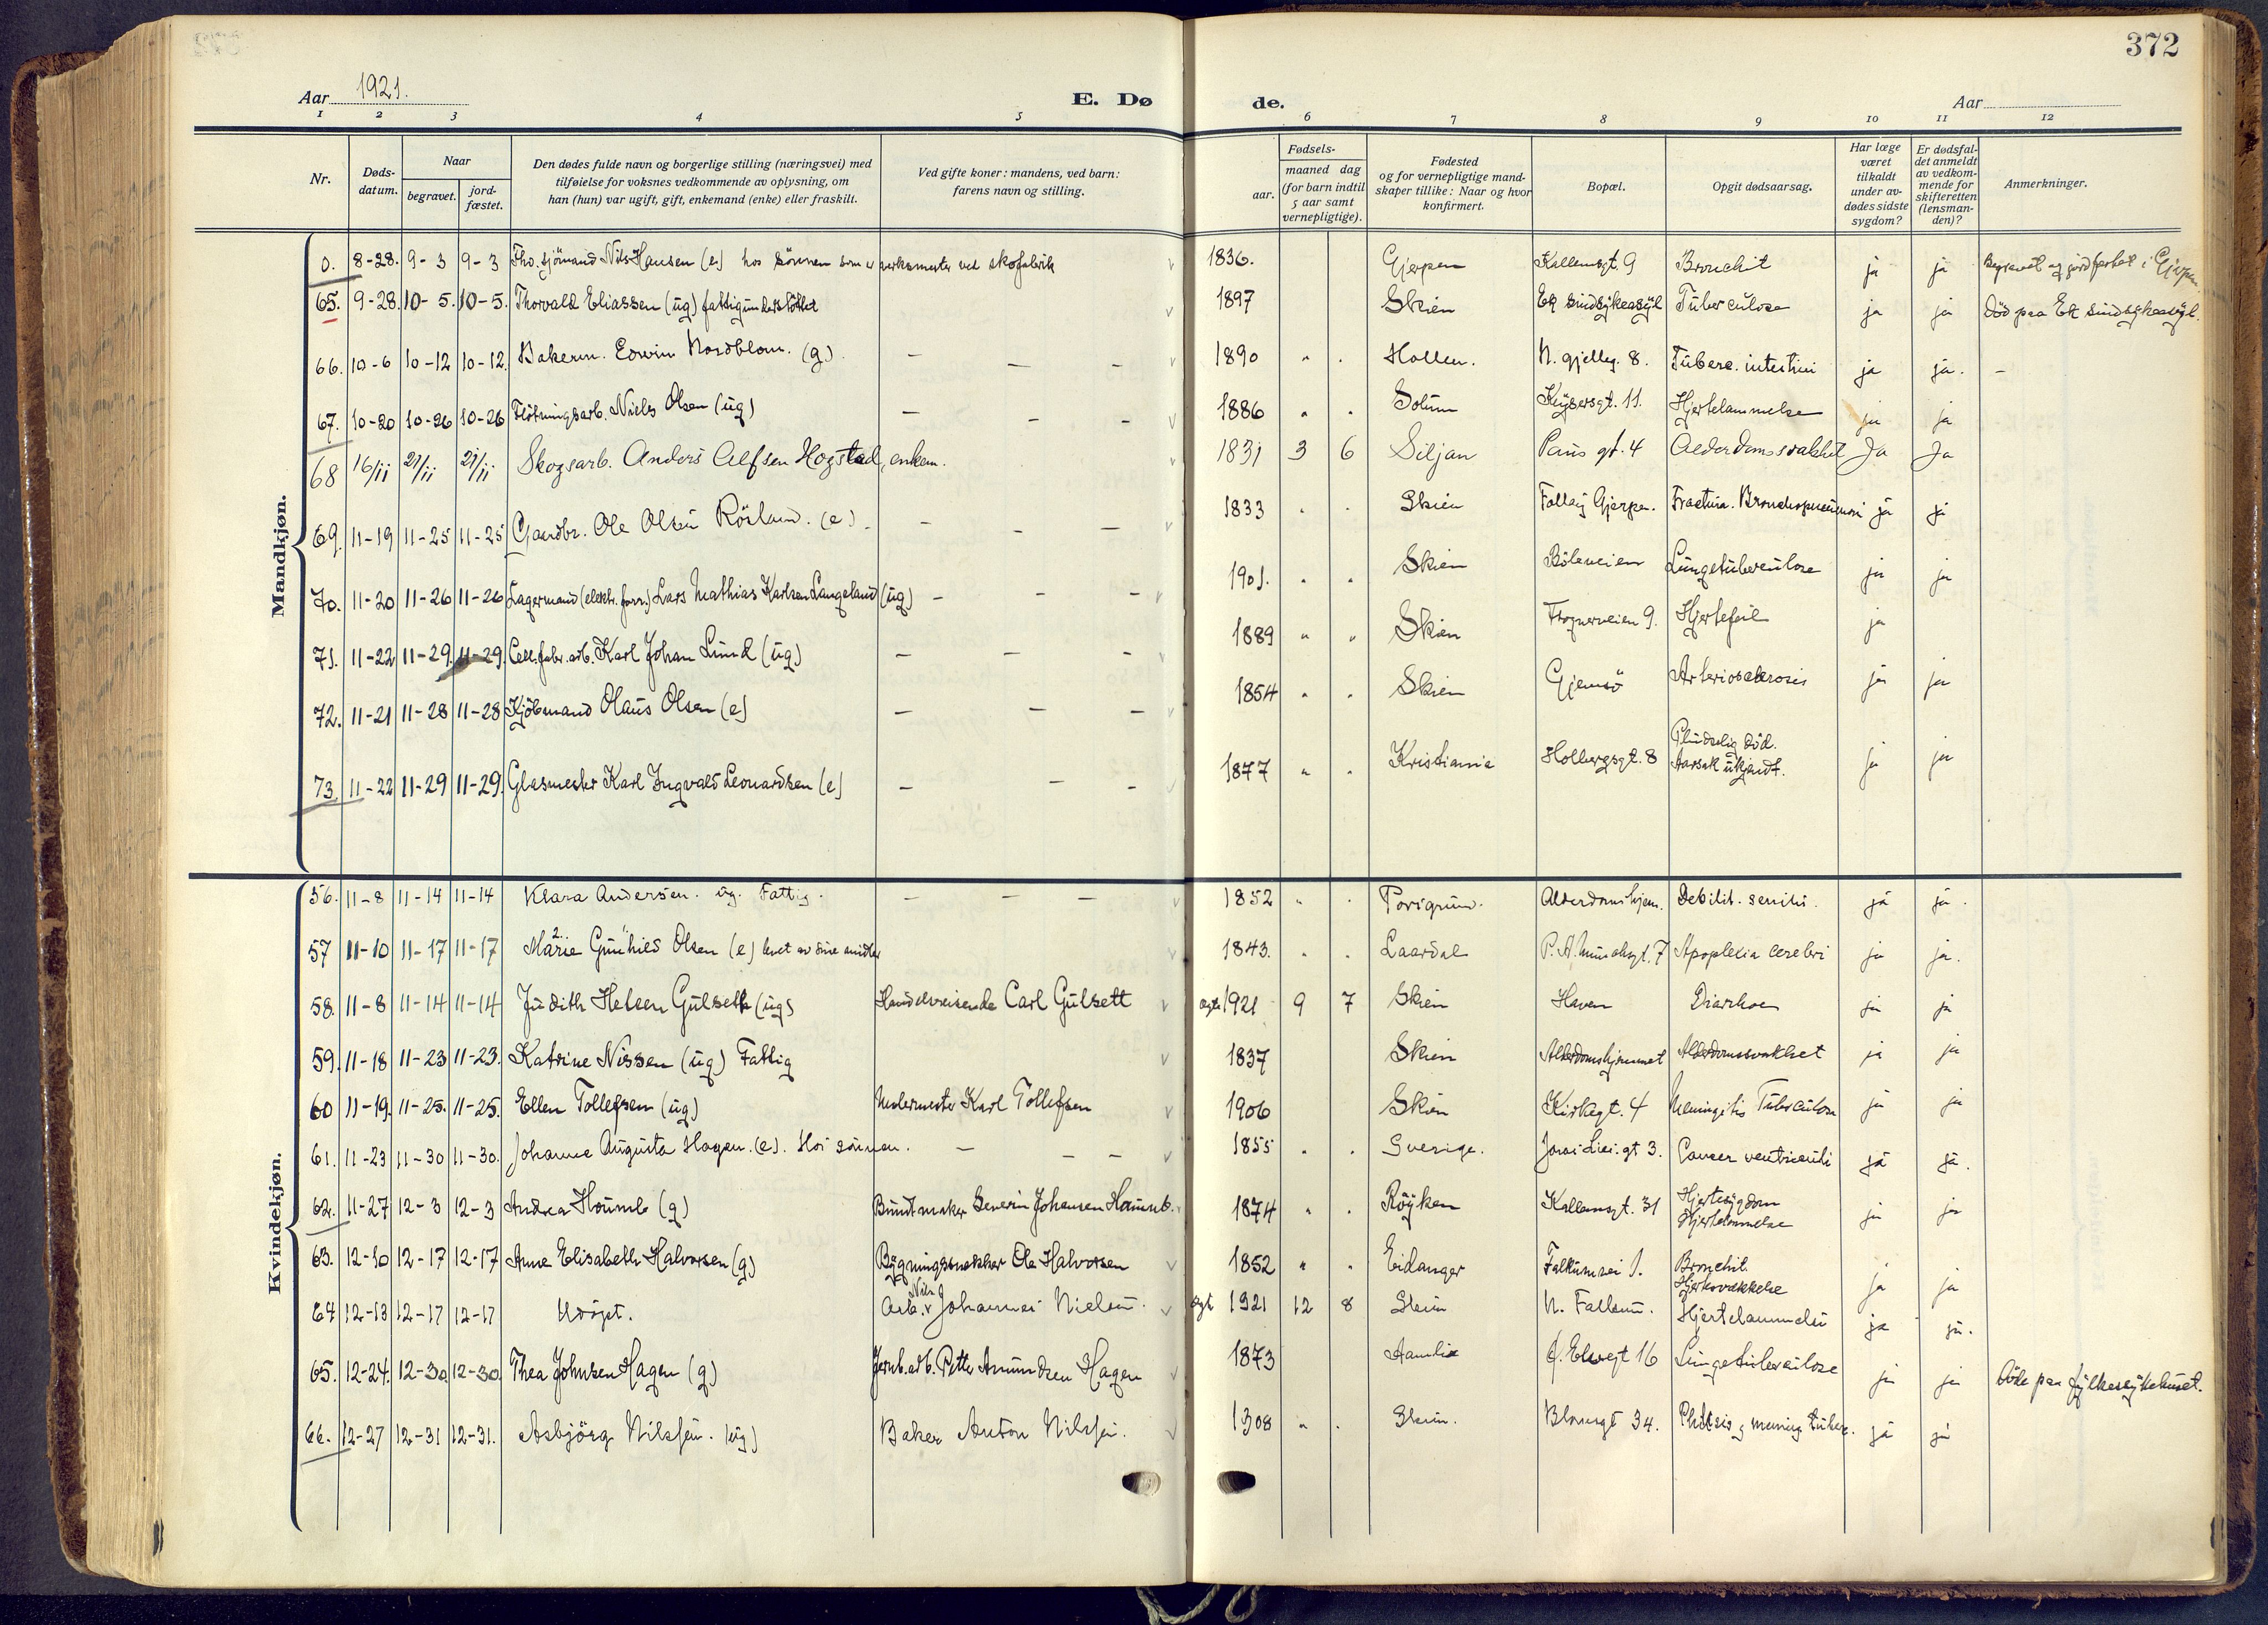 372
Aar 1921. E. Dø de. Aar
1 2 3 4 5 6 7 8 9 10 11 12
Nr.
Døds-datum.
Naar
begravet.
jord-fæstet.
Den dødes fulde navn og borgerlige stilling (næringsvei) med
tilføielse for voksnes vedkommende av oplysning, om
han (hun) var ugift, gift, enkemand (enke) eller fraskilt.
Ved gifte koner: mandens, ved barn:
farens navn og stilling.
Fødsels-
aar.
maaned dag
(for barn indtil
5 aar samt
vernepligtige).
Fødested
og for vernepligtige mand-
skaper tillike: Naar og hvor
konfirmert.
Bopæl.
Opgit dødsaarsag.
Har læge
været
tilkaldt
under av-
dødes sidste
sygdom?
Er dødsfal-
det anmeldt
av vedkom-
mende for
skifteretten
(lensman-
den)?
Anmerkninger.
Mandkjøn.
0. 8-28. 9-3 9-3 Fhv. sjömand Nils Hansen (e) hos sönnen som er verksmester ved skofabrik 1836. Gjerpen Kallemsgt. 9 Bronchit ja ja Begravet og jordfæstet i Gjerpen.
65. 9-28. 10-5. 10-5. Thorvald Eliassen (ug) fattigunderstöttet 1897 Skien Ek sindsykeasyl Tuberculose ja ja Död paa Ek sindsykeasyl.
66. 10-6 10-12 10-12. Bakerm. Edwin Nordblom. (g). — — — 1890 " . Hollen. N. gjelleg. 8. Tuberc. intestini ja ja. –
67. 10-20 10-26 10-26 Flötningsarb. Niels Olsen (ug) — — — 1886 " " Solum Keysersgt. 11. Hjertelammelse ja ja
68 16/11 21/11 21/11 Skogsarb. Anders Alfsen Hogstad, enkem. 1831 3 6 Siljan Paus gt. 4 Alderdomssvakhet Ja Ja
69. 11-19 11-25 11-25 Gaardbr. Ole Olsen (e). — — — 1833 . . Skien Gjerpen. Fractura. ja ja
70. 11-20 11-26 11-26 Lagermand (elektr. forr.) Lars Mathias Karlsen Langeland (ug) — — — 1901. " " Skien Böleveien Lungetuberculose ja ja
71. 11-22 11-29. 11-29. Cell. fabr. arb. Karl Johan Lund (ug) — — — 1889 " " Skien Frognerveien 9. Hjertefeil ja
72. 11-21 11-28 11-28 Kjöbmand Olaus Olsen (e) — — — 1854 " . Skien Gjemsö Arteriosclerosis ja ja
73. 11-22 11-29 11-29. Glasmester Karl Ingvald Leonardsen (e) — — — 1877 " . Kristiania Holbergsgt. 8 Pludselig död. Aarsak ukjendt. ja ja
Kvindekjøn.
56. 11-8 11-14 11-14 Klara Andersen. ug. Fattig. — — — 1852 " . Porsgrund. Alderdomshjem. Debilit. senilis. ja ja.
57 11-10 11-17 11-17 Marie Gunhild Olsen (e) levet av sine midler 1843. . . Laardal P. A. Munchsgt. 7 Apoplexia cerebri ja ja.
58. 11-8 11-14 11-14 Judith Helen Gulseth (ug) Handelsreisende Carl Gulsett ægte 1921 9 7 Skien Haven Diarrhoe ja ja
59. 11-18 11-23 11-23. Katrine Nissen (ug) Fattig 1837 Skien Alderdomshjemmet Alderdomssvakhet ja ja
60 11-19. 11-25. 11-25. Ellen Tollefsen (ug) Malermester Karl Tollefsen 1906 Skien Kirkegt. 4 Meningitis Tuberculosa ja ja
61. 11-23 11-30 11-30. Johanne Augusta Hagen. (e). Hos sönnen. — — — 1855 . . Sverige. Jonas Lies gt 3. Cancer ventriculi ja ja.
62. 11-27 12-3 12-3 Andrea Houmb (g) Buntmaker Severin Johansen Houmb. 1874 " . Röyken Kallemsgt. 31 Hjertesygdom Hjertelammelse ja ja
63. 12-10 12-17 12-17 Anne Elisabeth Halvorsen (g) Bygningssnekker Ole Halvorsen 1852 " . Eidanger Falkumvei 1. Bronchit. Hjertesvækkelse ja ja
64 12-13 12-17 12-17 Udöpt. Arb. Nils Johannes Nielsen. ægt 1921 12 8 Skien N. Falkum. Hjertelammelse ja ja.
65. 12-24. 12-30 12-30. Thea Johnsen Hagen (g) Jernb. arb. Petter Amundsen Hagen 1873 Hamlia gt 16 Lungetuberculose ja ja Döde paa fylkessykehuset.
66. 12-27 12-31 12-31. Asbjörg Nilssen. (ug) Baker Anton Nilssen. 1908 " . Skien. 34. Phthisis og mening. tuberc. ja ja